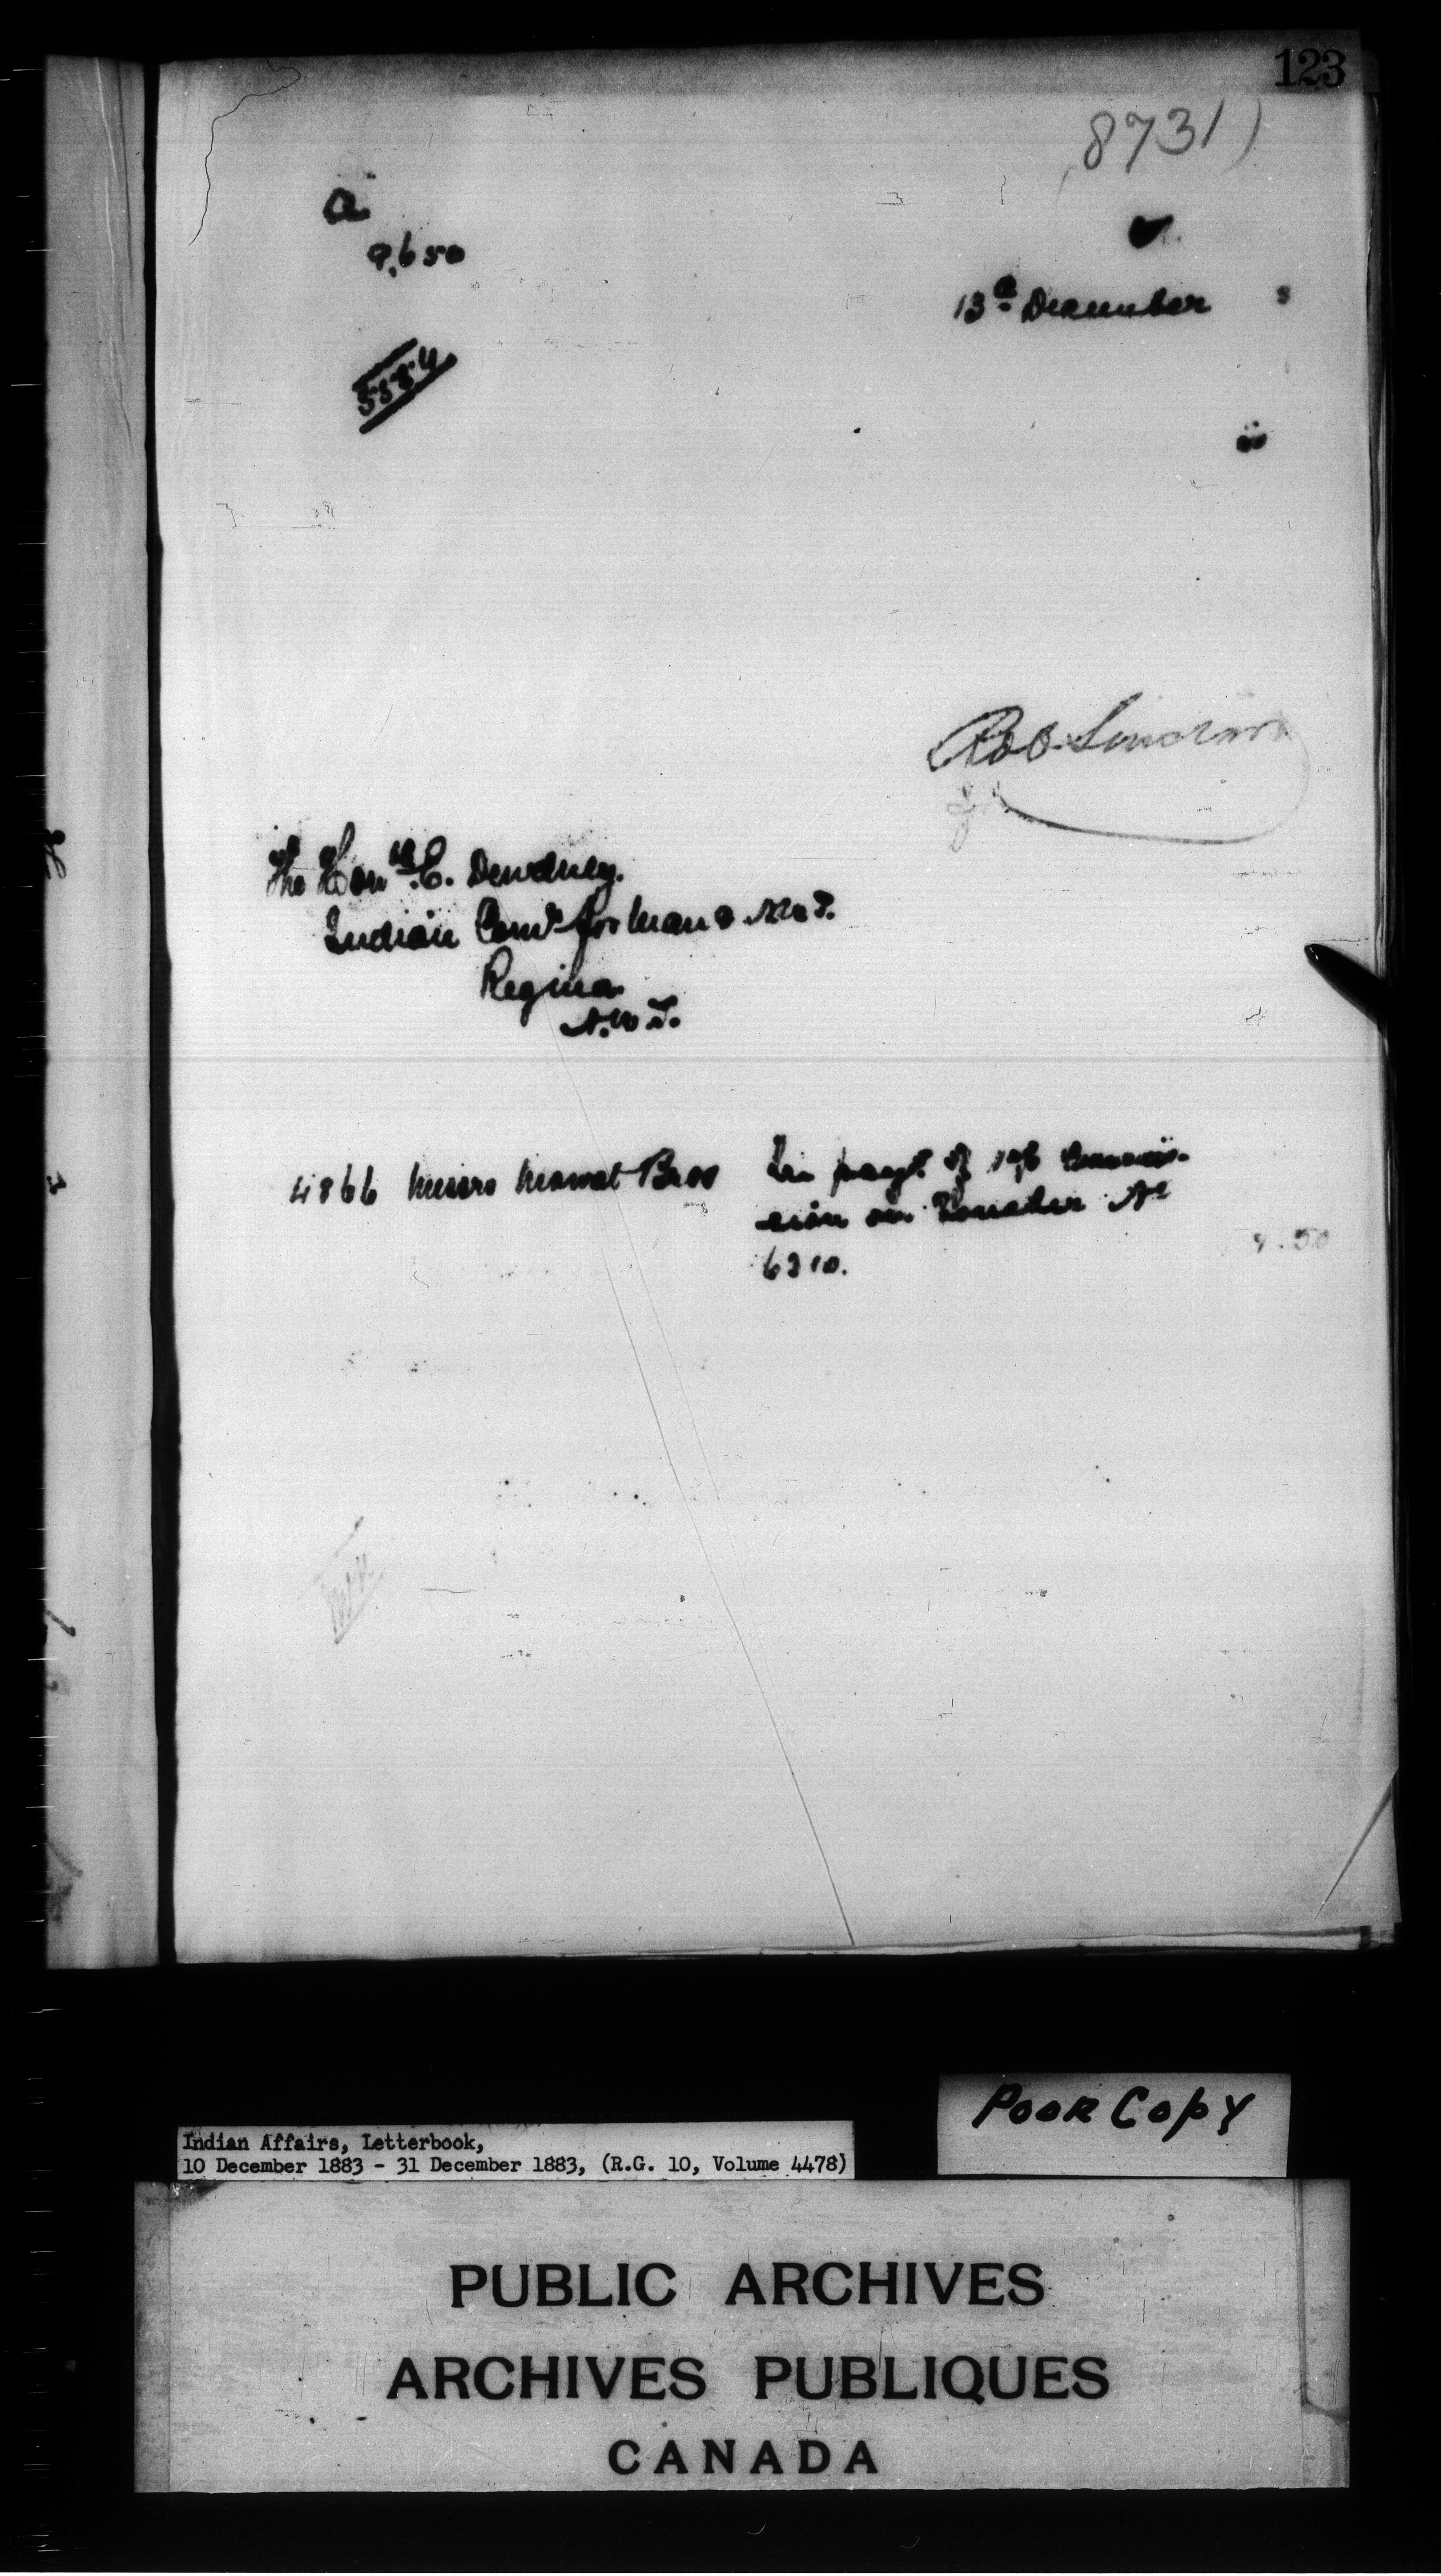 123
8731)
a
9,650
13th December 3
5584
Rob Sinclair
for
The Honble E. Dewdney.
Indian Comr for Man & N.W.T.
Regina
N.W.T.
4866 Messrs Mowat Bros In payt of 1% Commis-
sion on Voucher No
6310.
4.50
Poor Copy
Indian Affairs, Letterbook,
10 December 1883 - 31 December 1883, (R.G. 10, Volume 4478)
PUBLIC ARCHIVES
ARCHIVES PUBLIQUES
CANADA